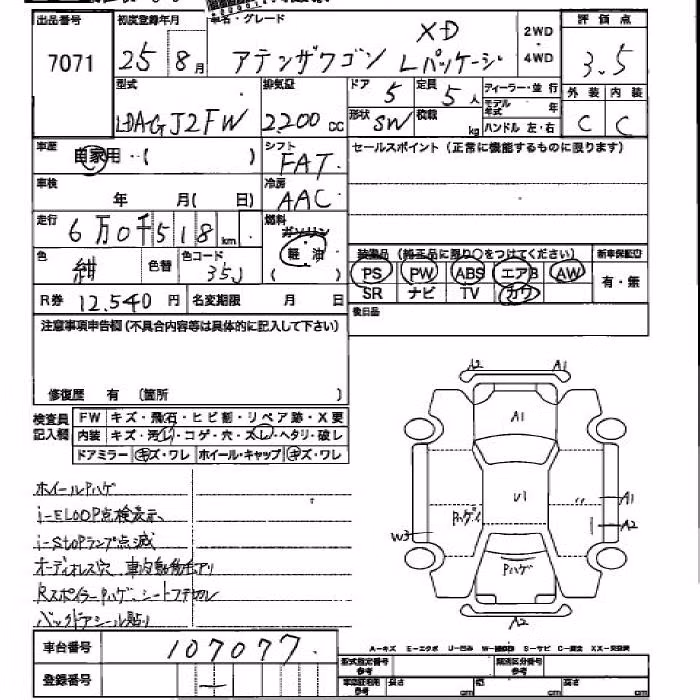 出品番号 初度登録年月 車名・グレード 評価点
7071 25年 8月 アテンザワゴン XD Lパッケージ 2WD・4WD 3.5
型式 排気量 ドア 5 定員 5人 ディーラー・並行 外装 内装
LDAGJ2FW 2200cc 形状 SW 積載 kg モデル年式 年 ハンドル 左・右 C C
車歴 自家用・( ) シフト FAT セールスポイント (正常に機能するものに限ります)
車検 年 月( 日) 冷房 AAC
走行 6万0千518km 燃料 ガソリン 軽油 ( )
色 紺 色替 色コード 35J
装備品 (純正品に限り○をつけてください) 新車保証書
PS PW ABS エアB AW 有・無
SR ナビ TV カワ
R券 12,540円 名変期限 月 日 後日品
注意事項申告欄 (不具合内容等は具体的に記入して下さい)
修復歴 有 (箇所 )
検査員記入欄 FW キズ・飛石・ヒビ割・リペア跡・X要
内装 キズ・汚レ・コゲ・穴・スレ・ヘタリ・破レ
ドアミラー キズ・ワレ ホイール・キャップ キズ・ワレ
ホイールPハゲ
i-ELOOP点検表示
i-stopランプ点滅
オーディオレス穴
Rスポイラーpハゲ、シート
バックドアシール貼り
A2 A1
A1
U1 A1
Pハゲ A2
W3
Pハゲ
A2
A-キズ E-エクボ U-凹み S-サビ
車台番号 107077
登録番号 —
型式指定番号 参考 類別区分番号 参考
長さ cm 幅 cm 高さ cm